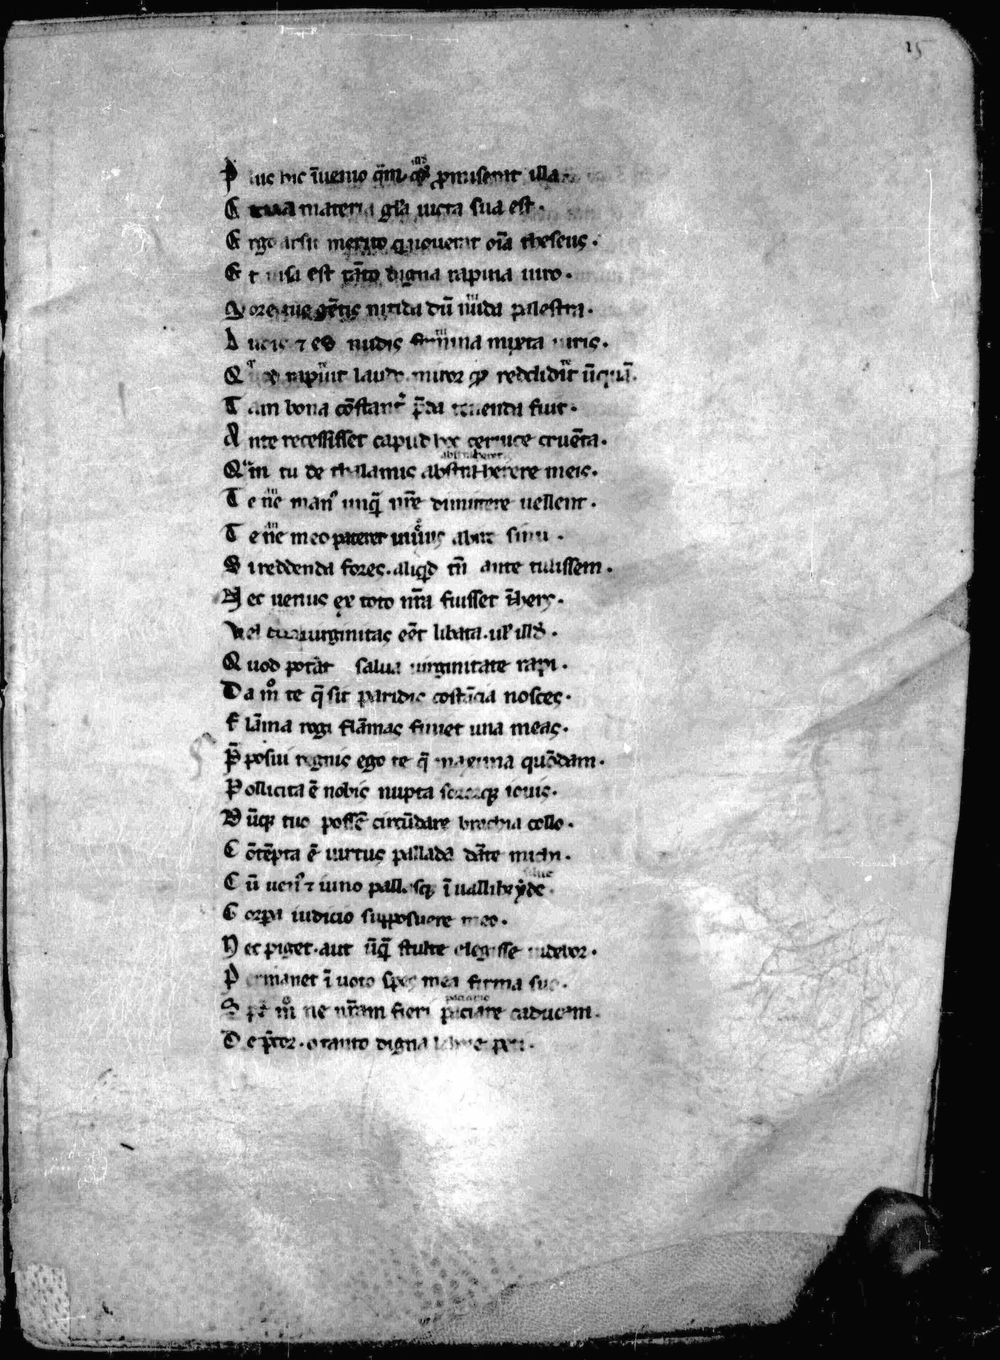 15
P lus hic īuenio q̄m q̄ ꝓmiserat illa.
E t tua materia gl̄a uicta sua est.
E rgo arsit merito qui nouerat oīa theseus.
E t uisa est tāto digna rapina uiro.
More tue gētis nitida dū nuda palestra.
L udis ⁊ es nudis femina mixta uiris.
Q uod rapuit laudo. miror ꝙ reddidit ūquā.
T am bona cōstant̾ p̄da tenenda fuit.
A nte recessisset capud hoc ceruice cruēta.
Q m̄ tu de thalamis abstraherere meis.
T e ne man᷒ unq̄ nr̄e dimittere uellent.
T e ne meo paterer uiuus abire sinu.
S i reddenda fores. aliqd tn̄ ante tulissem.
N ec uenus ex toto nr̄a fuisset īhers.
Vel tua uirginitas eēt libata. ul̓ illd.
Q uod poterat salua uirginitate rapi.
Da mͦ te q̄ sit paridis cōstācia nosces.
F lāma rogi flāmas finiet una meas.
P̄ posui regnis ego te q̄ maxima quōdam.
P ollicita ē nobis nupta sororq; iouis.
D ūq; tuo possē circūdare brachia collo.
C ōtēpta ē uirtus pallade dāte michi.
C ū uen᷒ ⁊ iuno pallasq; ī uallib; yde
C orpa iudicio supposuere meo.
N ec piget. aut ūq̄ stulte elegisse uidebor.
P ermanet ī uoto spes mea firma suo.
S pē mͦ ne nr̄am fieri paciare caducam.
D e p̄cor. o tanto digna labore peti.